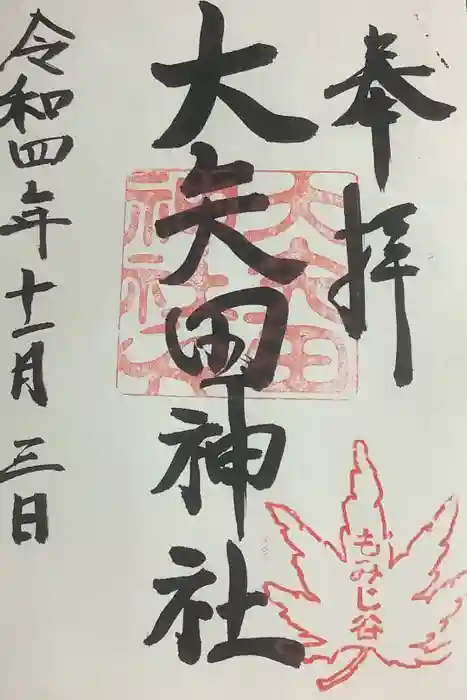 奉拝
大矢田神社
もみじ谷
令和四年十一月三日